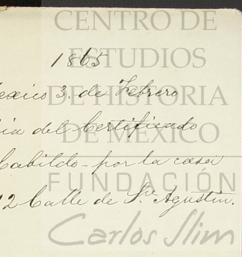 CENTRO DE
ESTUDIOS
DE HISTORIA
DE MEXICO
FUNDACIÓN
Carlos Slim
1865
exico 3. de Febrero
ia del Certificado
Cabildo por la casa
12 Calle de Sn. Agustin.